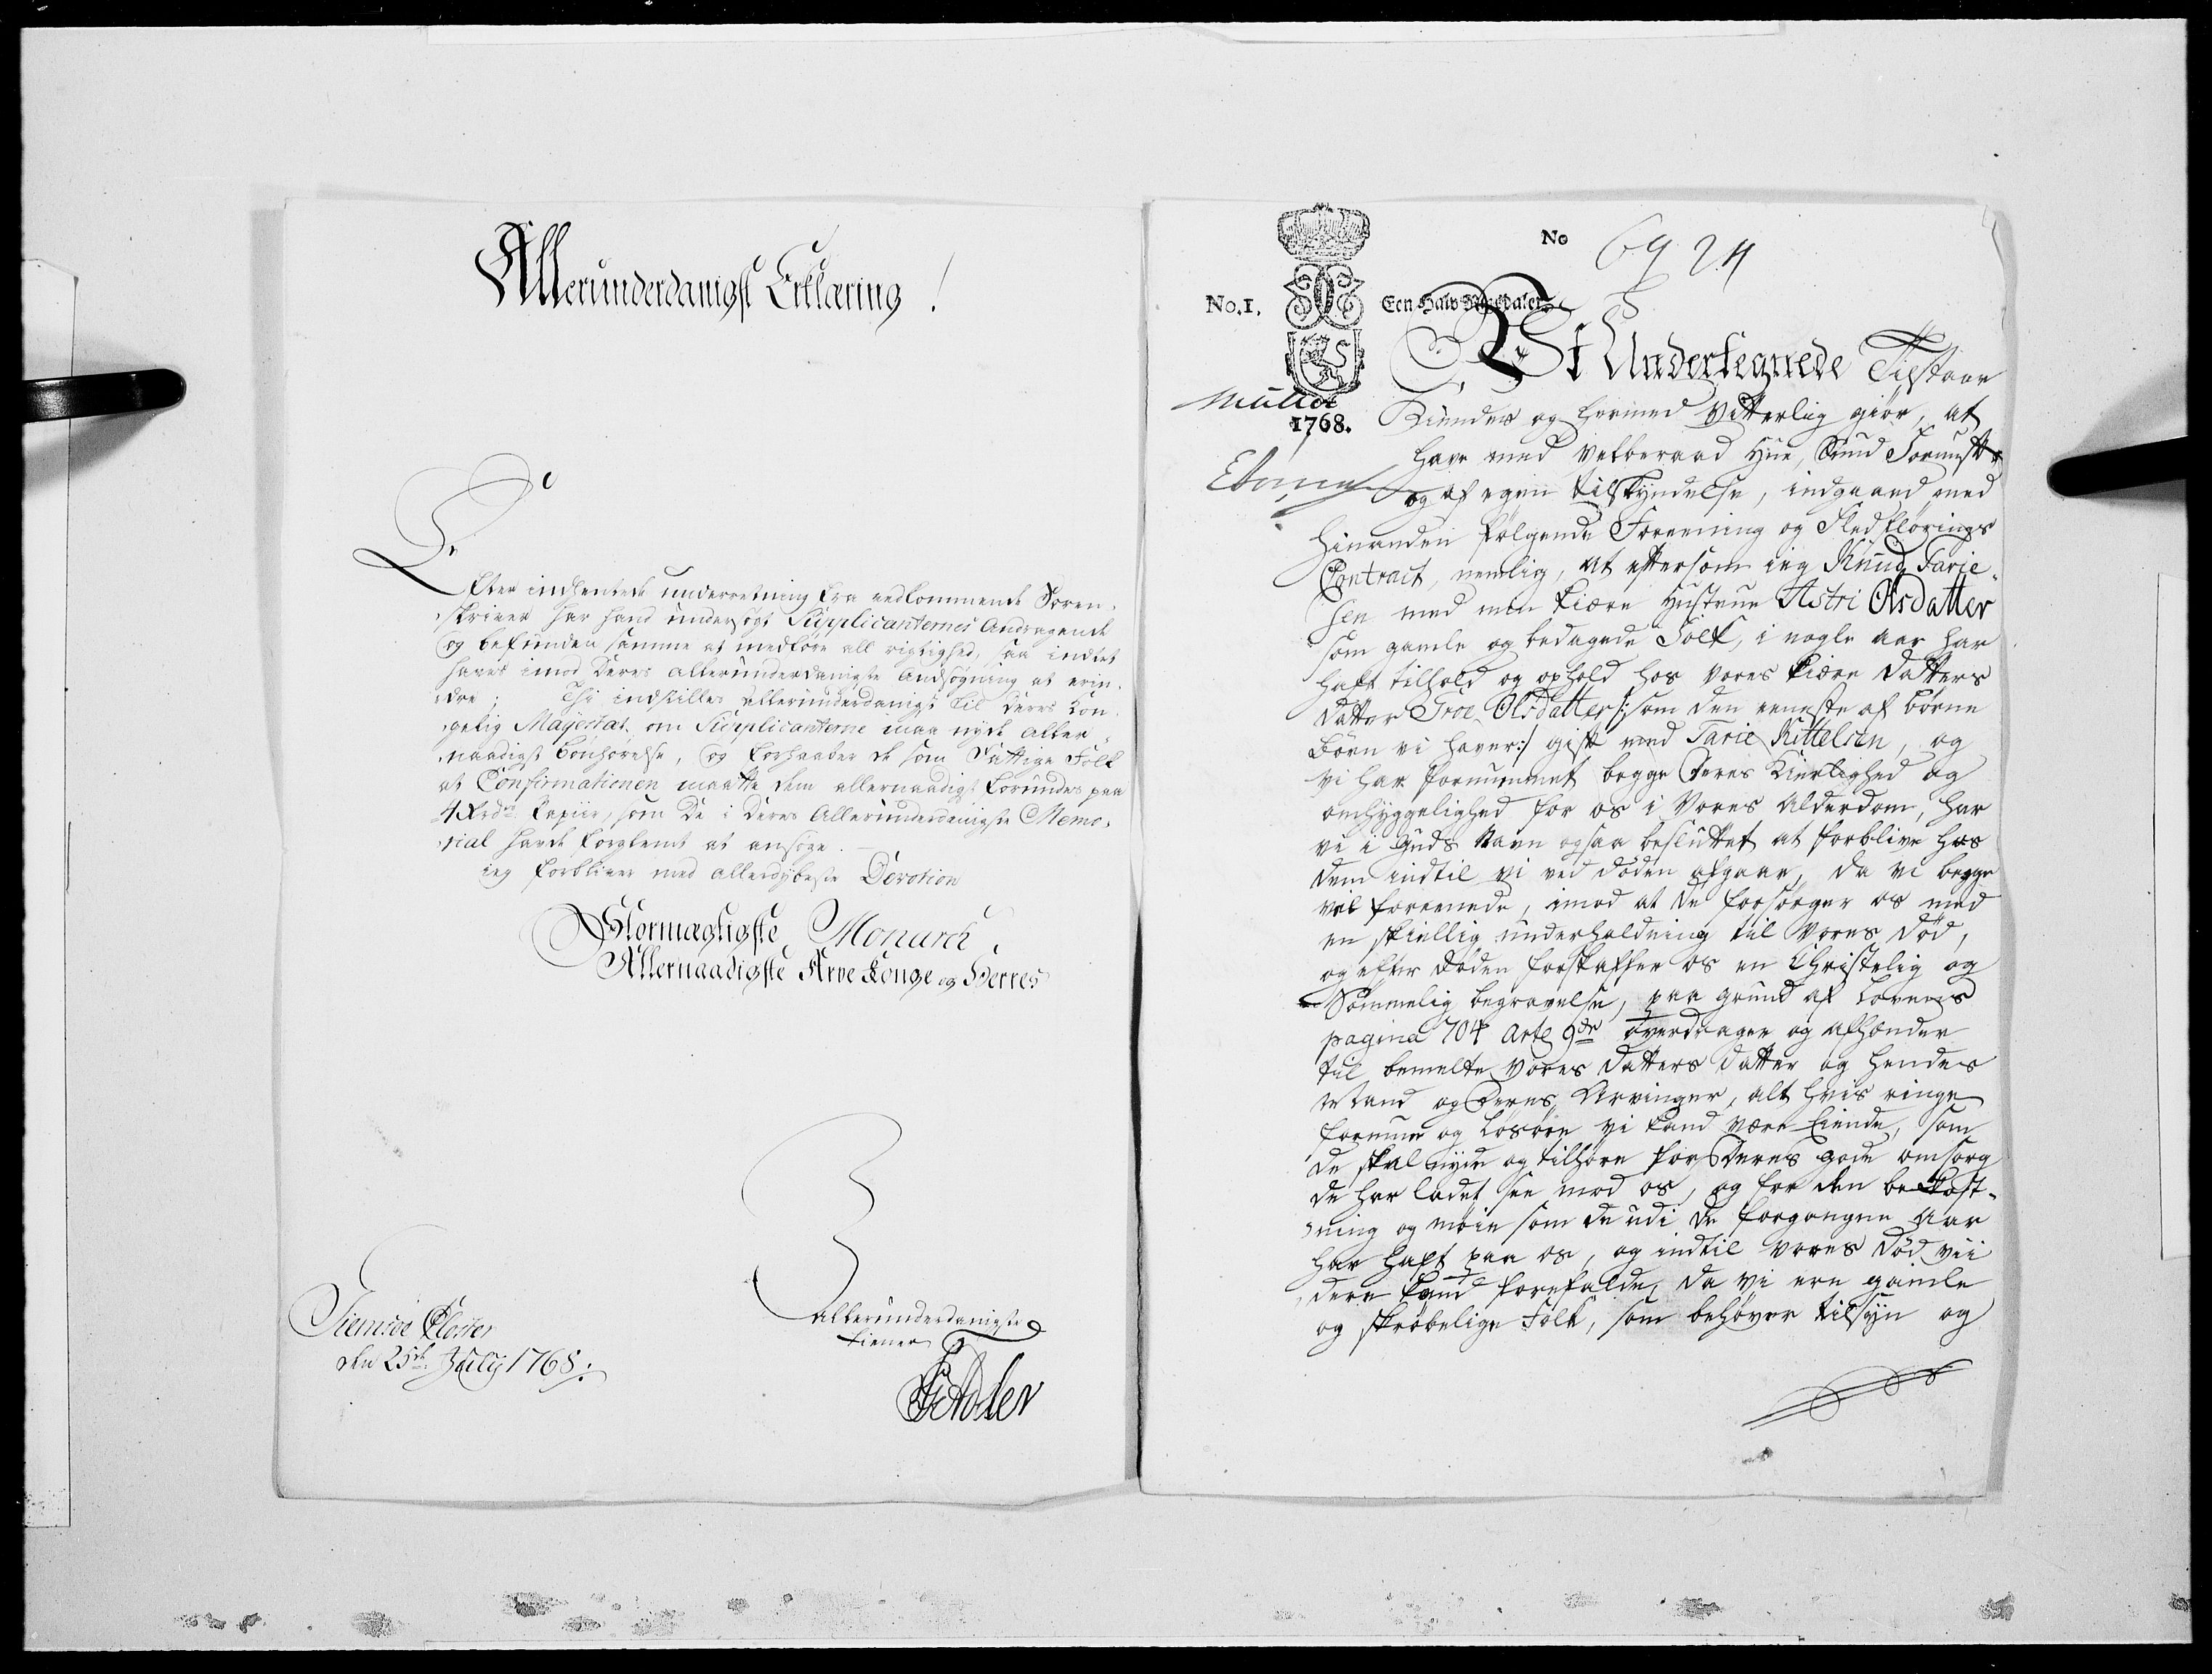 Allerunderdanigst Erklæring!
Efter indhentede underretning fra vedkommende Soren-
skriver har hand undersøgt Supplicanternes Andragende
og befunden samme at medføre all rigtighed, saa indtet
haves imod Deres allerunderdanigste Andsøgning at erin-
dre; Thi indstilles allerunderdanigst til Deres Kon-
gelig Majestæt, om Supplicanterne maa nyde aller-
naadigst bønhørelse, og forhaaber de som Fattige Folk
at Confirmationen maatte dem allernaadigst forundes paa
4 Papiir, som De i Deres Allerunderdanigste Memo-
rial havde forglemt at ansøge.
ieg forbliver med allerdybeste Devotion
Stormægtigste Monarch,
Allernaadigste Arve Konge og Herres
allerunderdanigste
tiener
FAdler
Giemsøe Kloster
den 25de July 1768.
No 6924
No. 1. Een Halv Rixdaler
1768.
Müller
Vi Undertegnede Tilstaar
Kiender og hermed vitterlig giør, at
have med velberaad Hue, Sund Fornuft
og af egen tilskyndelse, indgaaed med
hinanden følgende Foreening og Fledførings
Contract, nemlig, at eftersom ieg Knud Tarie-
sen med min kiære Hustrue Astri Olsdatter
som gamle og bedagede Folk, i nogle aar har
haft tilhold og ophold hos vores kiære Datters
datter Groe Olsdatter /: som den eeneste af børne
børn vi haver :/ gift med Tarie Kittelsen, og
vi har fornummet begge Deres Kierlighed og
omhyggelighed for os i Vores Alderdom, har
vi i Guds Navn ogsaa besluttet at forblive hos
dem indtil vi ved døden afgaar, da vi begge
vel foreenede, imod at de forsørger os med
en skiellig underholdning til Vores Død,
og efter døden forskaffer os en Christelig og
Sømmelig begravelse, paa grund af Lovens
pagina 704 Artl 9de overdrager og afhænder
til bemelte Vores Datters Datter og hendes
Mand og Deres Arvinger, alt hvis ringe
formue og Løsøre vi kand være Eiende, som
de skal nyde og tilhøre for Deres gode omsorg
de har ladet see mod os, og for den bekost-
ning og møie som de udi de forgangne Aar
har haft paa os, og indtil vores Død vii
dere kand forefalde, da vi ere gamle
og skrøbelige Folk, som behøver tilsyn og